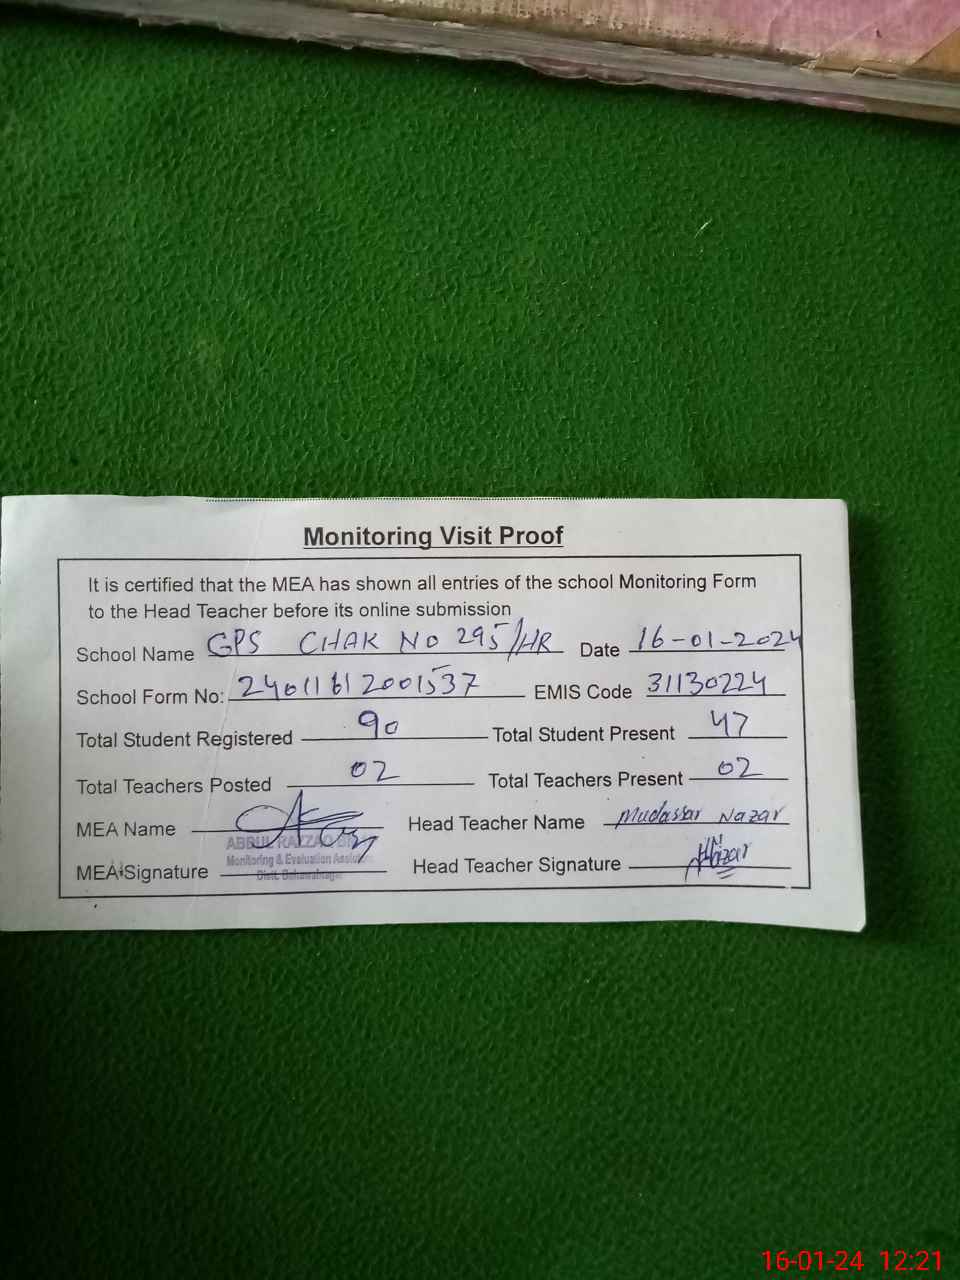 Monitoring Visit Proof
It is certified that the MEA has shown all entries of the school Monitoring Form
to the Head Teacher before its online submission
School Name GPS CHAK NO 295/HR Date 16-01-2024
School Form No: 24011612001537 EMIS Code 31130224
Total Student Registered 90 Total Student Present 47
Total Teachers Posted 02 Total Teachers Present 02
MEA Name Head Teacher Name Mudassar Nazar
ABDUL RAZZAQ
Monitoring & Evaluation
MEA Signature Head Teacher Signature
Distt. Bahawalnagar
16-01-24 12:21